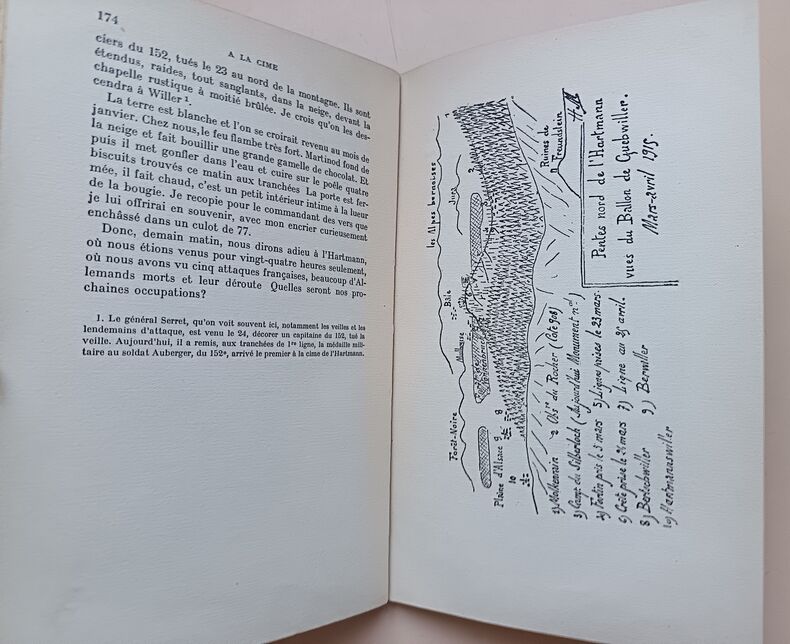 174
A LA CIME
ciers du 152, tués le 23 au nord de la montagne. Ils sont
étendus, raides, tout sanglants, dans la neige, devant la
chapelle rustique à moitié brûlée. Je crois qu'on les des-
cendra à Willer 1.
La terre est blanche et l'on se croirait revenu au mois de
janvier. Chez nous, le feu flambe très fort. Martinod fond de
la neige et fait bouillir une grande gamelle de chocolat. Et
puis il met gonfler dans l'eau et cuire sur le poêle quatre
biscuits trouvés ce matin aux tranchées La porte est fer-
mée, il fait chaud, c'est un petit intérieur intime à la lueur
de la bougie. Je recopie pour le commandant des vers que
je lui offrirai en souvenir, avec mon encrier curieusement
enchâssé dans un culot de 77.
Donc, demain matin, nous dirons adieu à l'Hartmann,
où nous étions venus pour vingt-quatre heures seulement,
où nous avons vu cinq attaques françaises, beaucoup d'Al-
lemands morts et leur déroute Quelles seront nos pro-
chaines occupations?
1. Le général Serret, qu'on voit souvent ici, notamment les veilles et les
lendemains d'attaque, est venu le 24, décorer un capitaine du 152, tué la
veille. Aujourd'hui, il a remis, aux tranchées de 1re ligne, la médaille mili-
taire au soldat Auberger, du 152e, arrivé le premier à la cime de l'Hartmann.
les Alpes bernoises
Jura
Bâle
Mulhouse
Forêt-Noire
Plaine d'Alsace
9
8
10
Ruines de
Freundstein
H.M.
Pentes nord de l'Hartmann
vues du Ballon de Guebwiller.
Mars-avril 1915.
1) Molkenrain 2 Obs re du Rocher (Cote 908)
3) Camp du Silberloch (Aujourd'hui Monument nal)
4) Fortin pris le 5 mars 5) Lignes prises le 23 mars
6) Crête prise le 26 mars 7) Ligne au 25 avril.
8) Bertschwiller 9) Berrwiller
10) Hartmannswiller